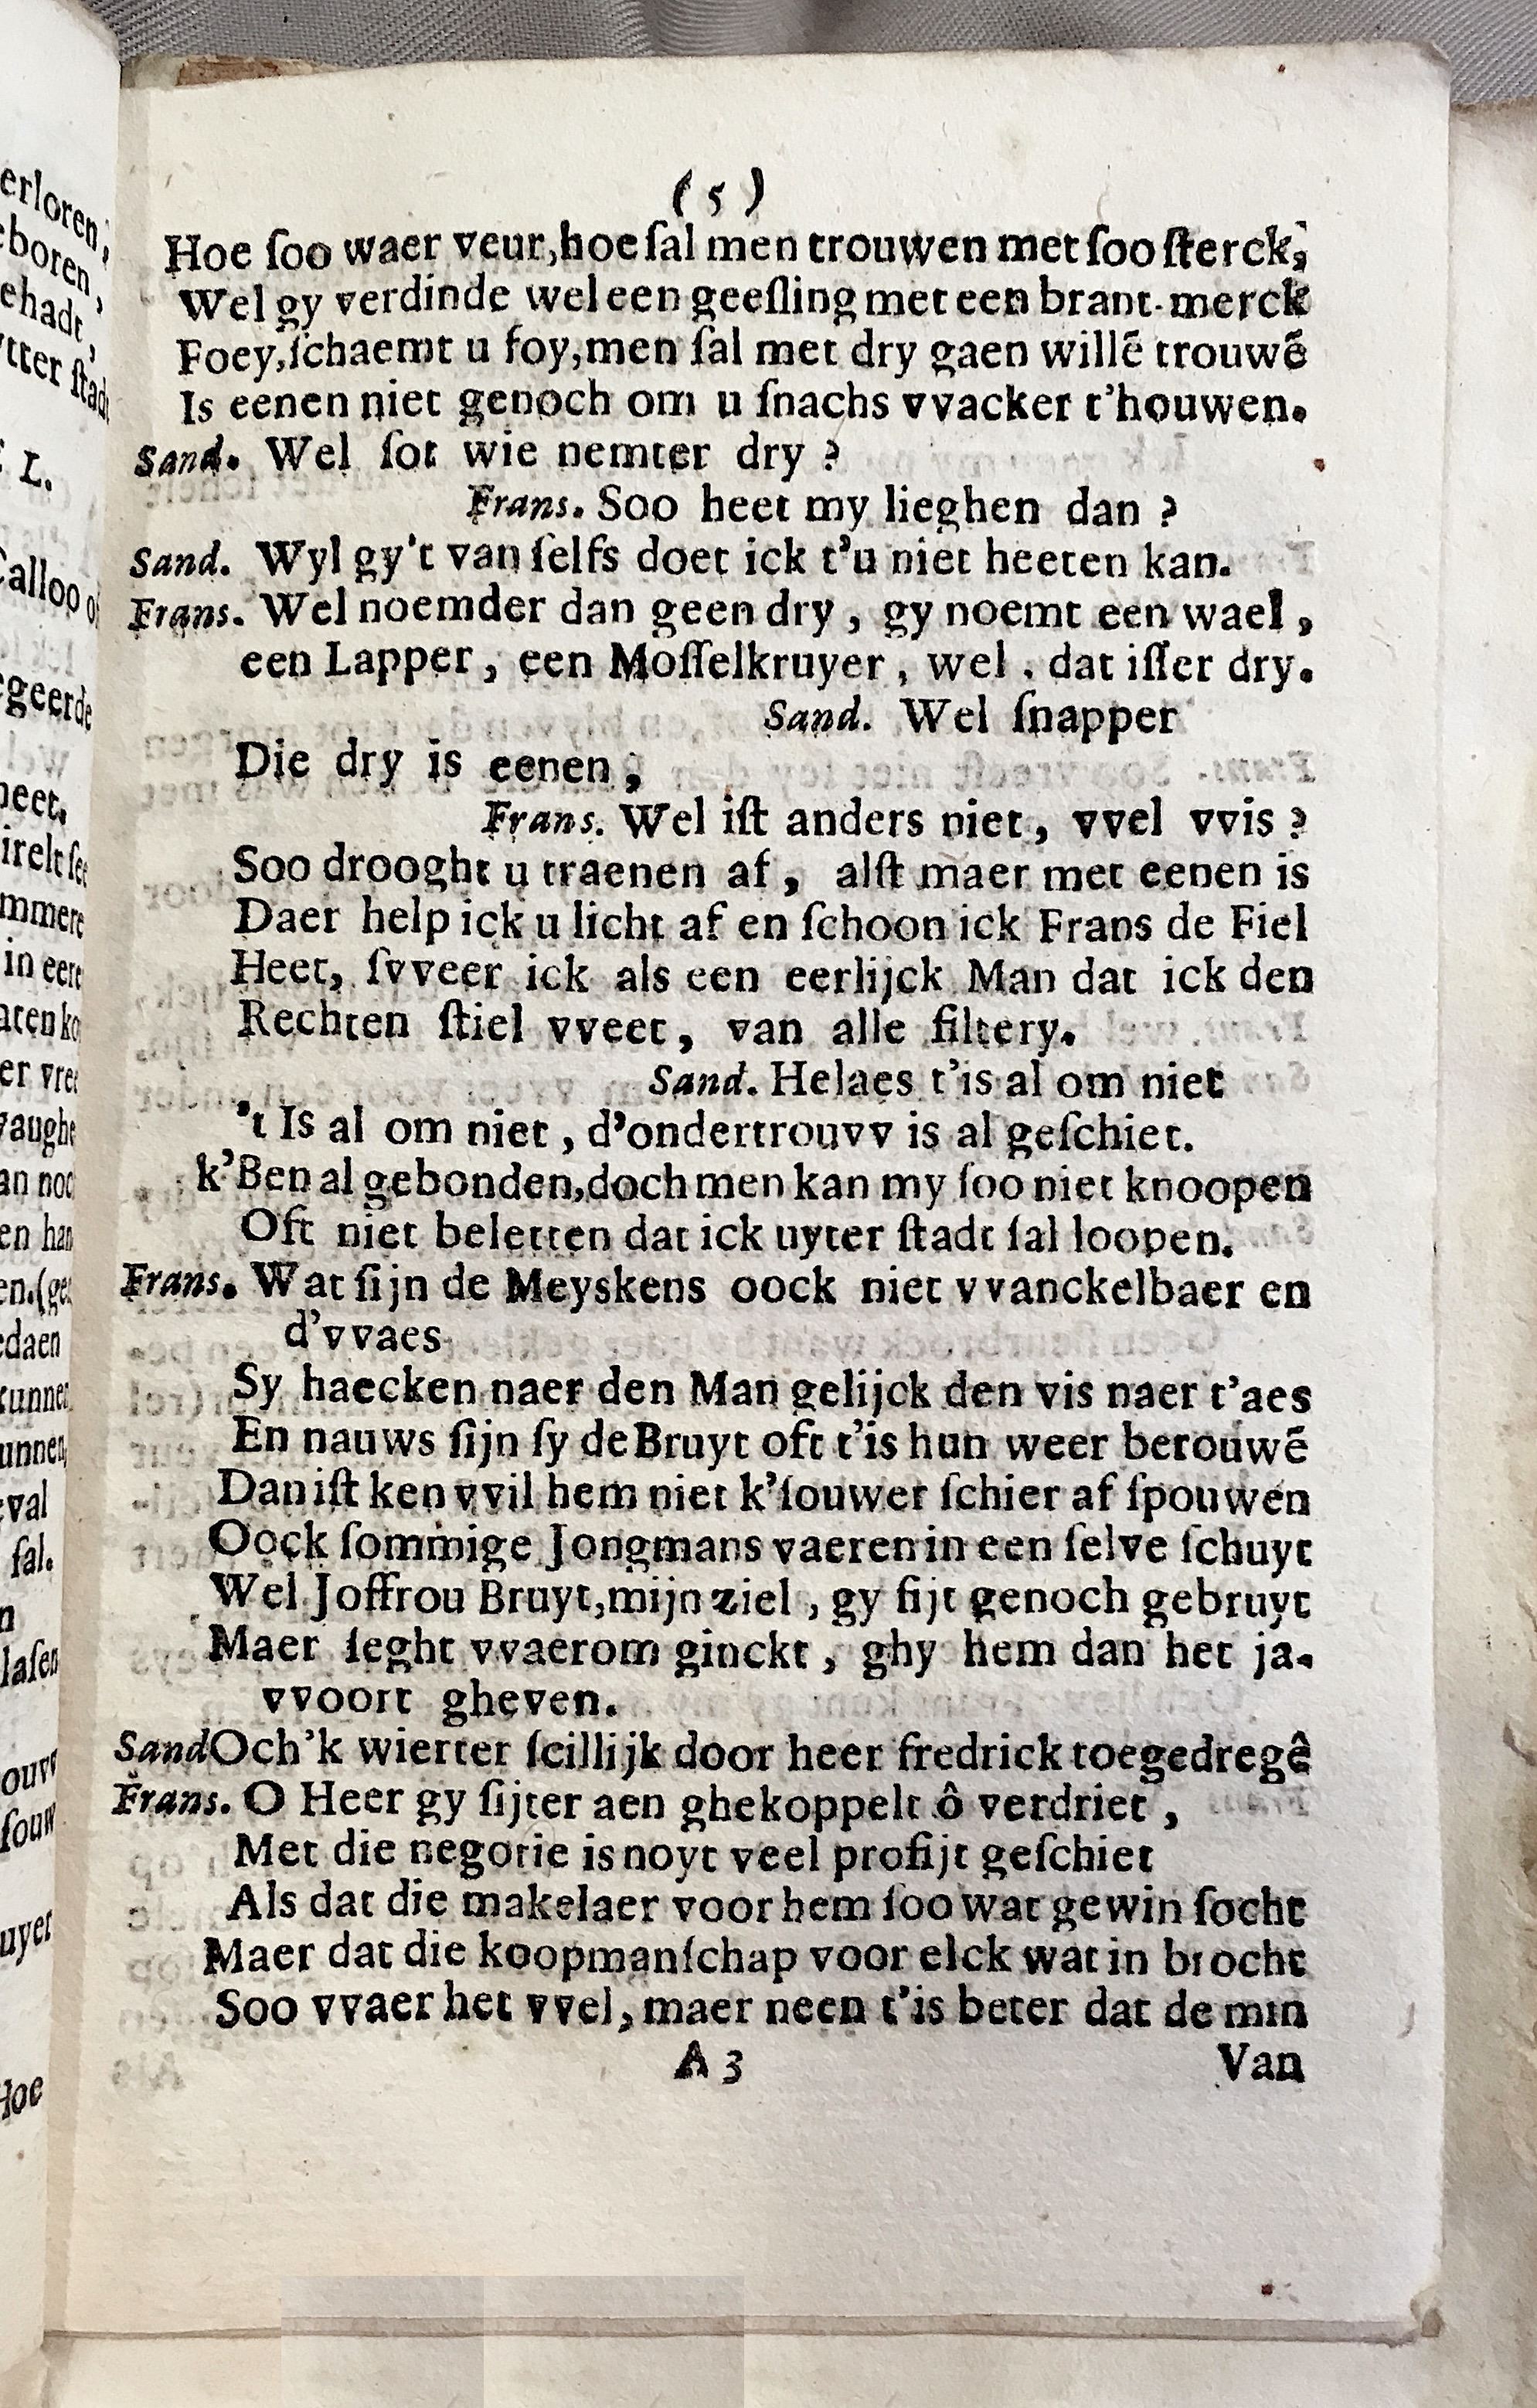 ( 5 )
Hoe ſoo waer veur,hoe ſal men trouwen met ſoo ſterck,
Wel gy verdinde wel een geeſling met een brant-merck
Foey,ſchaemt u foy,men ſal met dry gaen willē trouwē
Is eenen niet genoch om u ſnachs vvacker t'houwen.
Sand. Wel ſot wie nemter dry ?
Frans. Soo heet my lieghen dan ?
Sand. Wyl gy't van ſelfs doet ick t'u niet heeten kan.
Frans. Wel noemder dan geen dry , gy noemt een wael ,
een Lapper , een Moſſelkruyer , wel , dat iſſer dry.
Sand. Wel ſnapper
Die dry is eenen ,
Frans. Wel iſt anders niet , vvel vvis ?
Soo drooght u traenen af , alſt maer met eenen is
Daer help ick u licht af en ſchoon ick Frans de Fiel
Heet, ſvveer ick als een eerlijck Man dat ick den
Rechten ſtiel vveet , van alle filtery.
Sand. Helaes t'is al om niet
't Is al om niet , d'ondertrouvv is al geſchiet.
k'Ben al gebonden,doch men kan my ſoo niet knoopen
Oft niet beletten dat ick uyter ſtadt ſal loopen.
Frans. Wat ſijn de Meyskens oock niet vvanckelbaer en
d'vvaes
Sy haecken naer den Man gelijck den vis naer t'aes
En nauws ſijn ſy de Bruyt oft t'is hun weer berouwē
Dan iſt ken vvil hem niet k'ſouwer ſchier af ſpouwen
Oock ſommige Jongmans vaeren in een ſelve ſchuyt
Wel Joffrou Bruyt,mijn ziel , gy ſijt genoch gebruyt
Maer ſeght vvaerom ginckt , ghy hem dan het ja-
vvoort gheven.
Sand Och'k wierter ſcillijk door heer fredrick toegedregê
Frans. O Heer gy ſijter aen ghekoppelt ô verdriet ,
Met die negotie is noyt veel profijt geſchiet
Als dat die makelaer voor hem ſoo wat gewin ſocht
Maer dat die koopmanſchap voor elck wat in brocht
Soo vvaer het vvel, maer neen t'is beter dat de min
A 3
Van